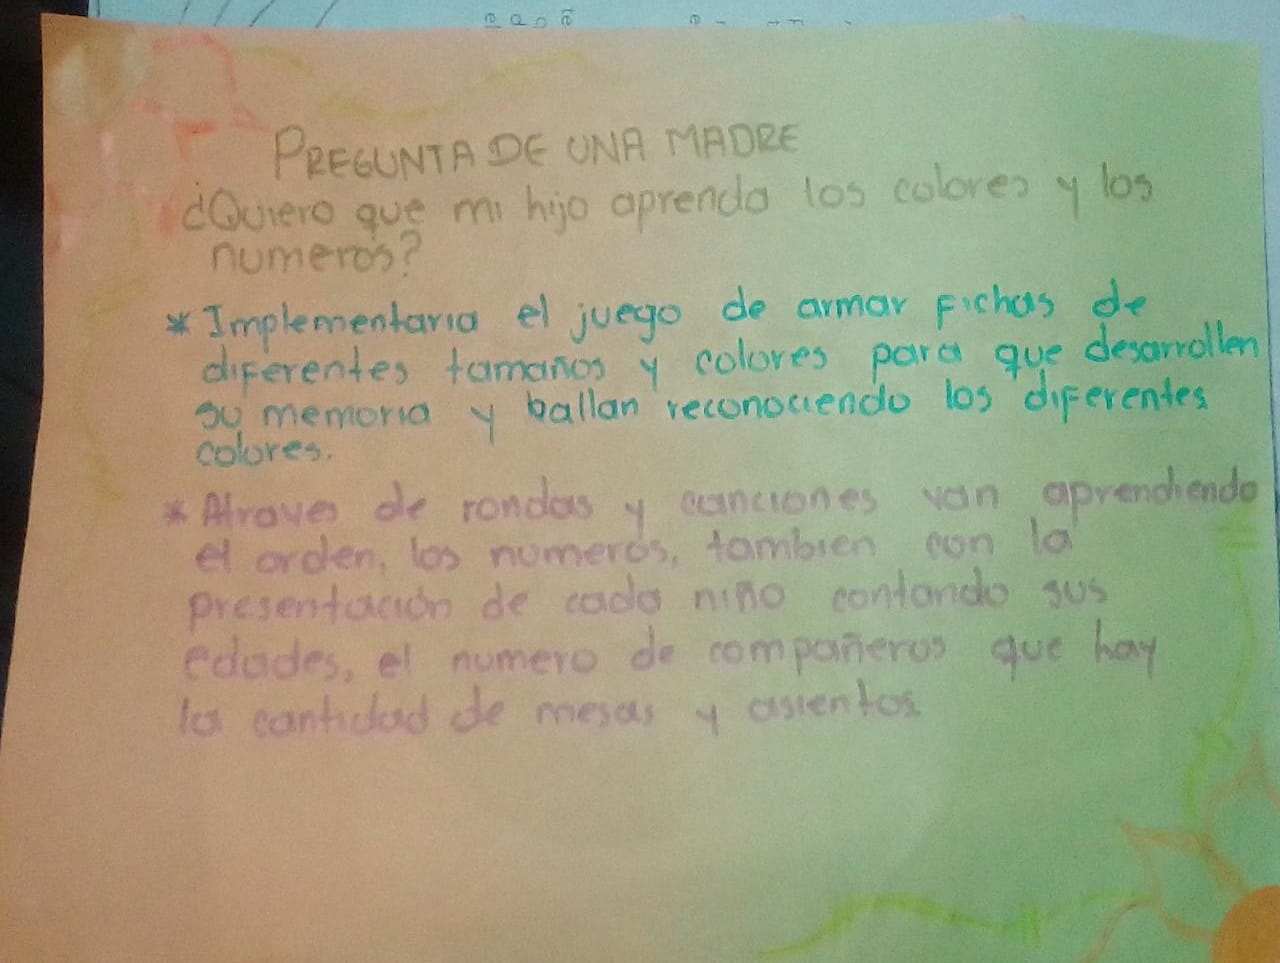 PREGUNTA DE UNA MADRE
¿Quiero que mi hijo aprenda los colores y los
numeros?
* Implementaria el juego de armar fichas de
diferentes tamaños y colores para que desarrollen
su memoria y ballan reconociendo los diferentes
colores.
* Atraves de rondas y canciones van aprendiendo
el orden, los numeros, tambien con la
presentación de cada niño contando sus
edades, el numero de compañeros que hay
la cantidad de mesas y asientos